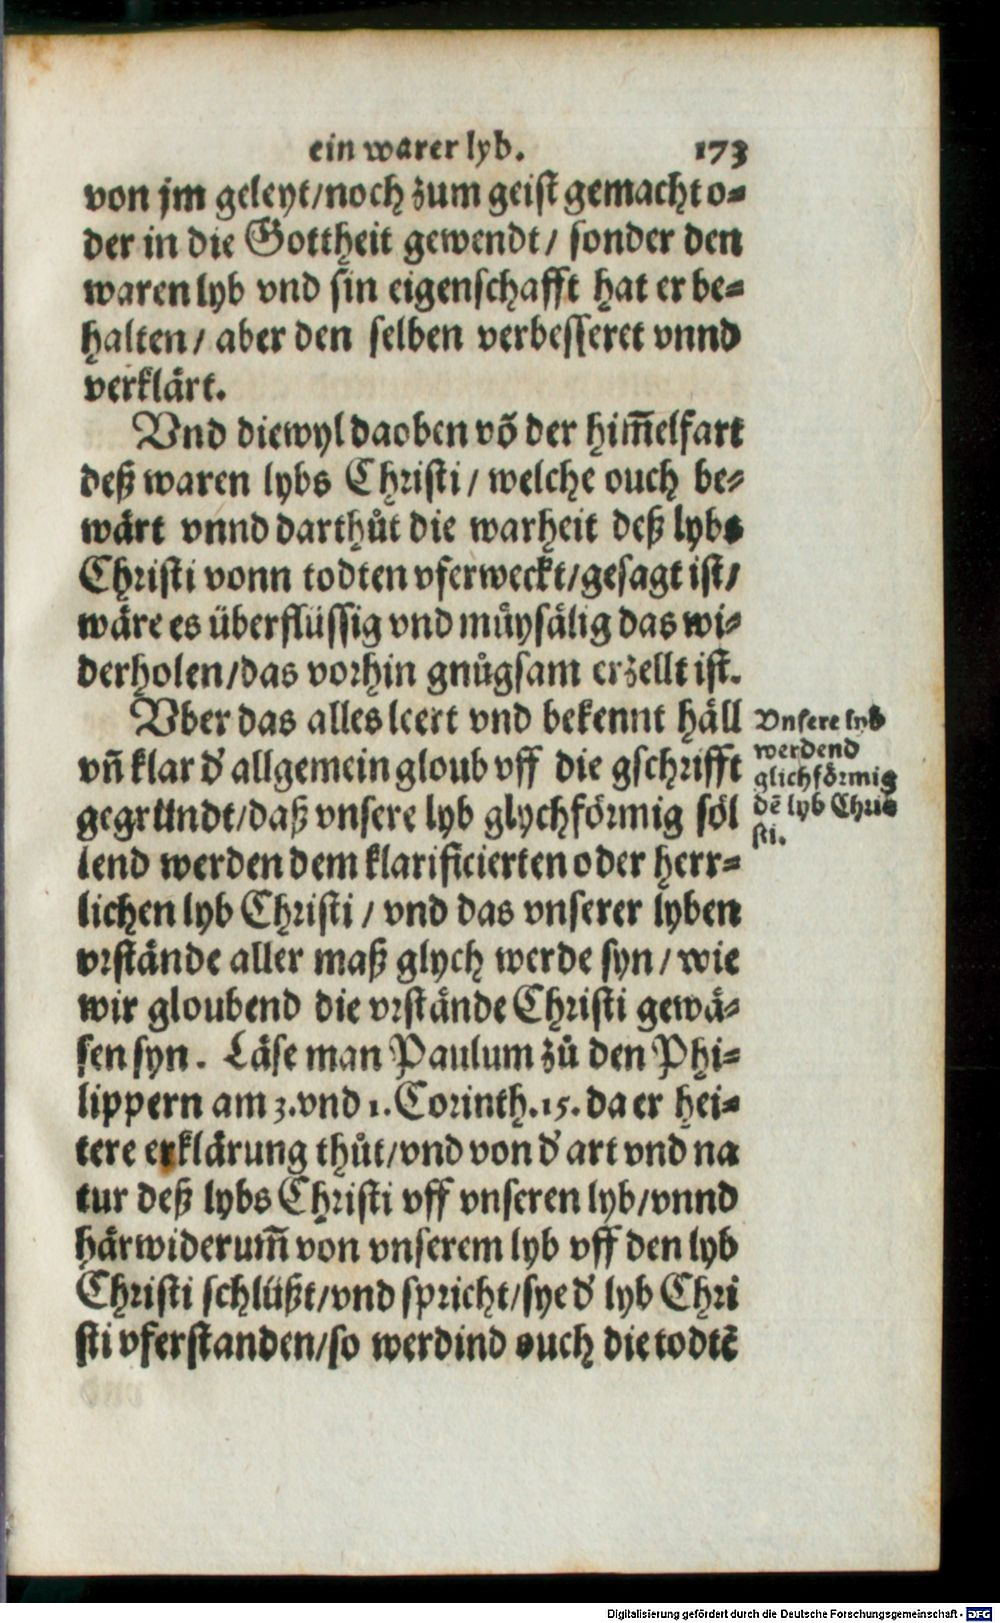 ein warer lyb. 173
von jm geleyt/noch zum geist gemacht o-
der in die Gottheit gewendt/ sonder den
waren lyb vnd sin eigenschafft hat er be-
halten/ aber den selben verbesseret vnnd
verklärt.
Vnd diewyl daoben võ der him̃elfart
deß waren lybs Christi/ welche ouch be-
wärt vnnd darthůt die warheit deß lybs
Christi vonn todten vferweckt/gesagt ist/
wäre es überflüssig vnd můysälig das wi-
derholen/das vorhin gnůgsam erzellt ist.
Vber das alles leert vnd bekennt häll
vñ klar d' allgemein gloub vff die gschrifft
gegründt/daß vnsere lyb glychförmig söl
lend werden dem klarificierten oder herr-
lichen lyb Christi/ vnd das vnserer lyben
vrstände aller maß glych werde syn/ wie
wir gloubend die vrstände Christi gewä-
sen syn. Läse man Paulum zů den Phi-
lippern am 3.vnd 1.Corinth.15. da er hei-
tere erklärung thůt/vnd von d' art vnd na
tur deß lybs Christi vff vnseren lyb/vnnd
härwiderum̃ von vnserem lyb vff den lyb
Christi schlüßt/vnd spricht/sye d' lyb Chri
sti vferstanden/so werdind ouch die todtẽ
Vnsere lyb
werdend
glichförmig
dẽ lyb Chri-
sti.
Digitalisierung gefördert durch die Deutsche Forschungsgemeinschaft - DFG